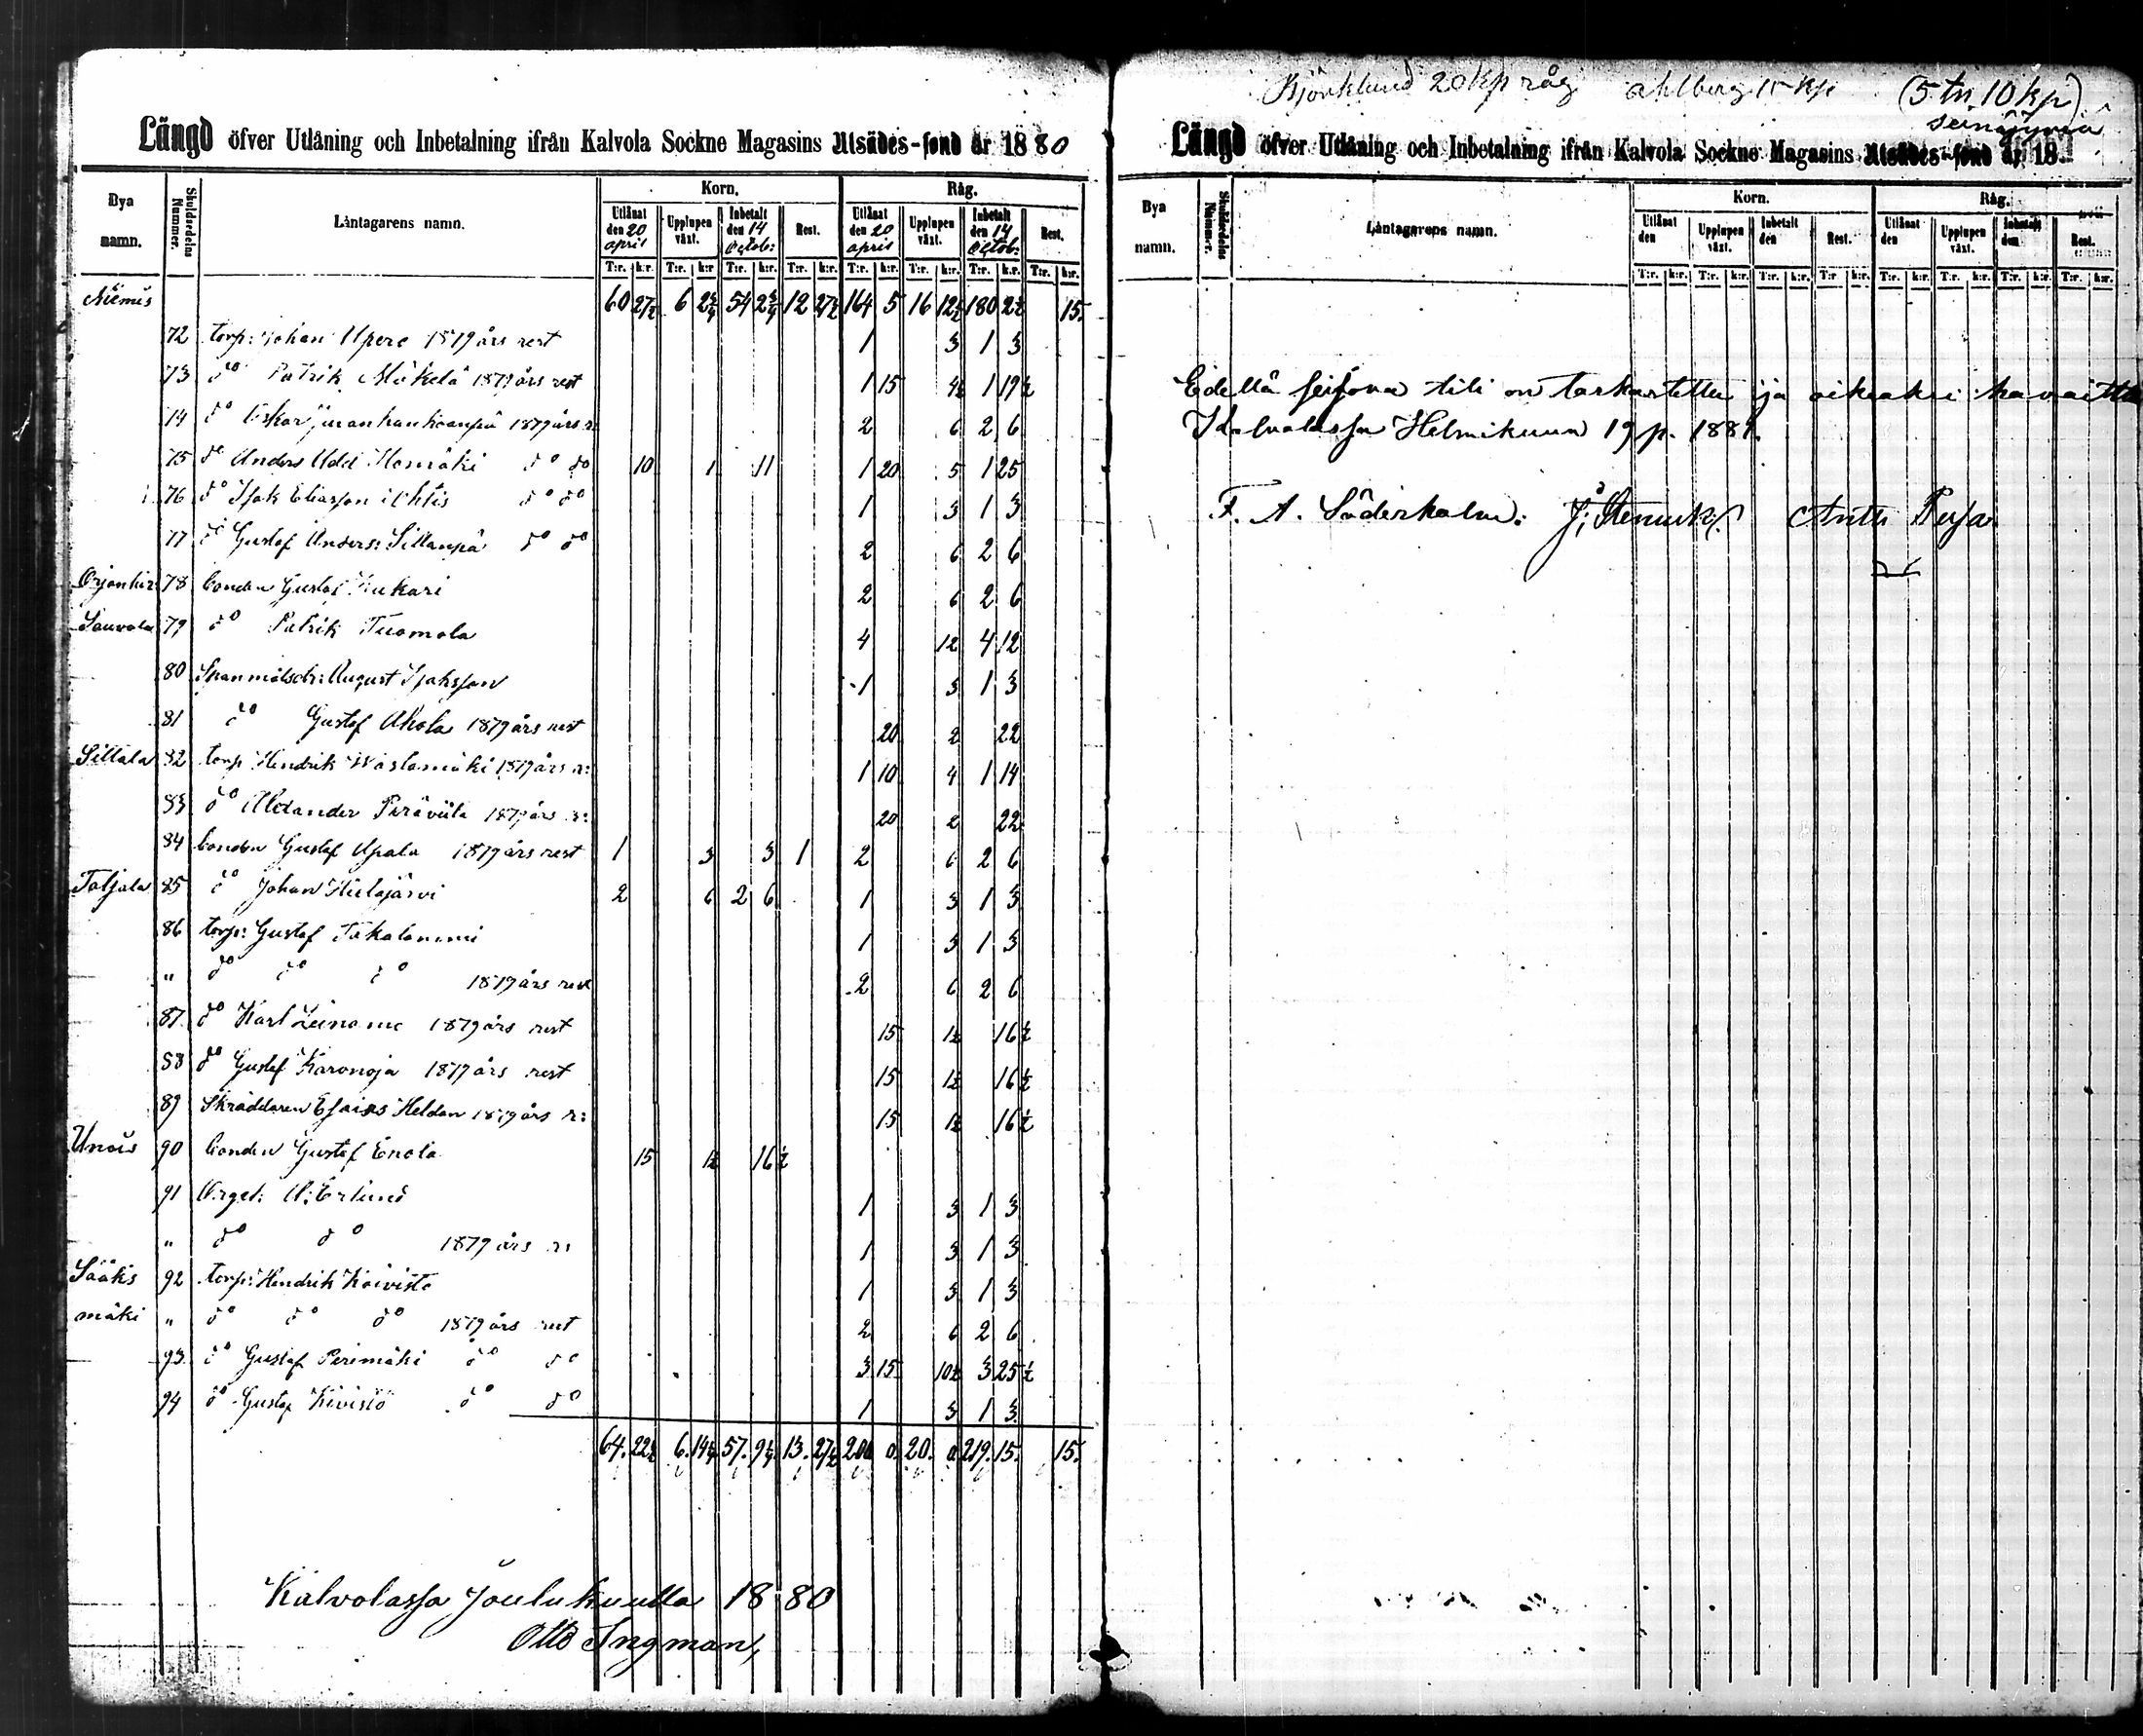 Längd öfver Utlåning och Inbetalning ifrån Kalvola Sockne Magasins Utsädes-fond år 1880
Bya namn. Skuldsedelns Nummer. Låntagarens namn. Korn. Råg.
Utlånat den 20 april Upplupen växt. Inbetalt den 14 Octob: Rest. Utlånat den 20 april Upplupen växt. Inbetalt den 14 Octob: Rest.
T:r. k:r. T:r. k:r T:r. k:r. T:r. k:r. T:r. k:r. T:r. k:r. T:r. k:r. T:r. k:r.
Niemis 60 27½ 6 2¾ 54 2¾ 12 27½ 164 5 16 12½ 180 2½ 15.
72 torp: Johan Upero 1879 års rest 1 3 1 3
73 do Patrik Mäkelä 1879 års rest 1 15 4½ 1 19½
74 do Oskar 1879 års r. 2 6 2 6
75 do Anders Udd Homäki do do 10 1 11 1 20 5 1 25
76 do Isak Eliasson i Ohtis do do 1 3 1 3
77 do Gustaf Anders: Sillanpä do do 2 6 2 6
78 bonden Gustaf Kukari 2 6 2 6
Sauvala 79 do Patrik Tuomola 4 12 4 12
80 Spanmålsdr: August Isaksson 1 3 1 3
81 do Gustaf Ahola 1879 års rest 20 2 22
Sittala 82 torp Hendrik Wästämäki 1879 års r: 1 10 4 1 14
83 do Alexander Peräviita 1879 års r: 20 2 22
84 bonden Gustaf Upala 1879 års rest 1 3 3 1 2 6 2 6
Taljala 85 do Johan Hietajärvi 2 6 2 6 1 3 1 3
86 torp: Gustaf Takalammi 1 3 1 3
" do do do 1879 års rest 2 6 2 6
87. do Karl Leinome 1879 års rest 15 1½ 16½
88 do Gustaf Karonoja 1879 års rest 15 1½ 16½
89 Skräddaren Esaias Heldan 1879 års r: 15 1½ 16½
Unais 90 bonden Gustaf Enola 15 1½ 16½
91 Orgel: A: Erlund 1 3 1 3
" do do 1879 års r: 1 3 1 3
Sääks 92 torp: Hendrik Koivisto 1 3 1 3
mäki " do do do 1879 års rest 2 6 2 6
93. do Gustaf Perimäki do do 3 15 10½ 3 25½
94 do Gustaf Kivistö do do 1 3 1 3
64. 22½ 6. 14¼ 57. 9¼ 13. 27½ 200 0. 20. 0. 219. 15. 15.
Kalvolassa Joulukuulla 1880
Otto Ingman,
Björklund 20 kp råg ahlberg 15 kp (5 tn. 10 kp)
Längd öfver Utlåning och Inbetalning ifrån Kalvola Sockne Magasins Utsädes-fond år 18
Bya namn. Skuldsedelns Nummer. Låntagarens namn. Korn. Råg.
Utlånat den Upplupen växt. Inbetalt den Rest. Utlånat den Upplupen växt. Inbetalt den Rest.
T:r. k:r. T:r. k:r. T:r. k:r. T:r. k:r. T:r. k:r. T:r. k:r. T:r. k:r. T:r. k:r.
Edellä seisova tili on tarkastettu ja oikeaksi havaittu
Kalvolassa Helmikuun 19 p. 1881.
F. A. Söderholm. Antti